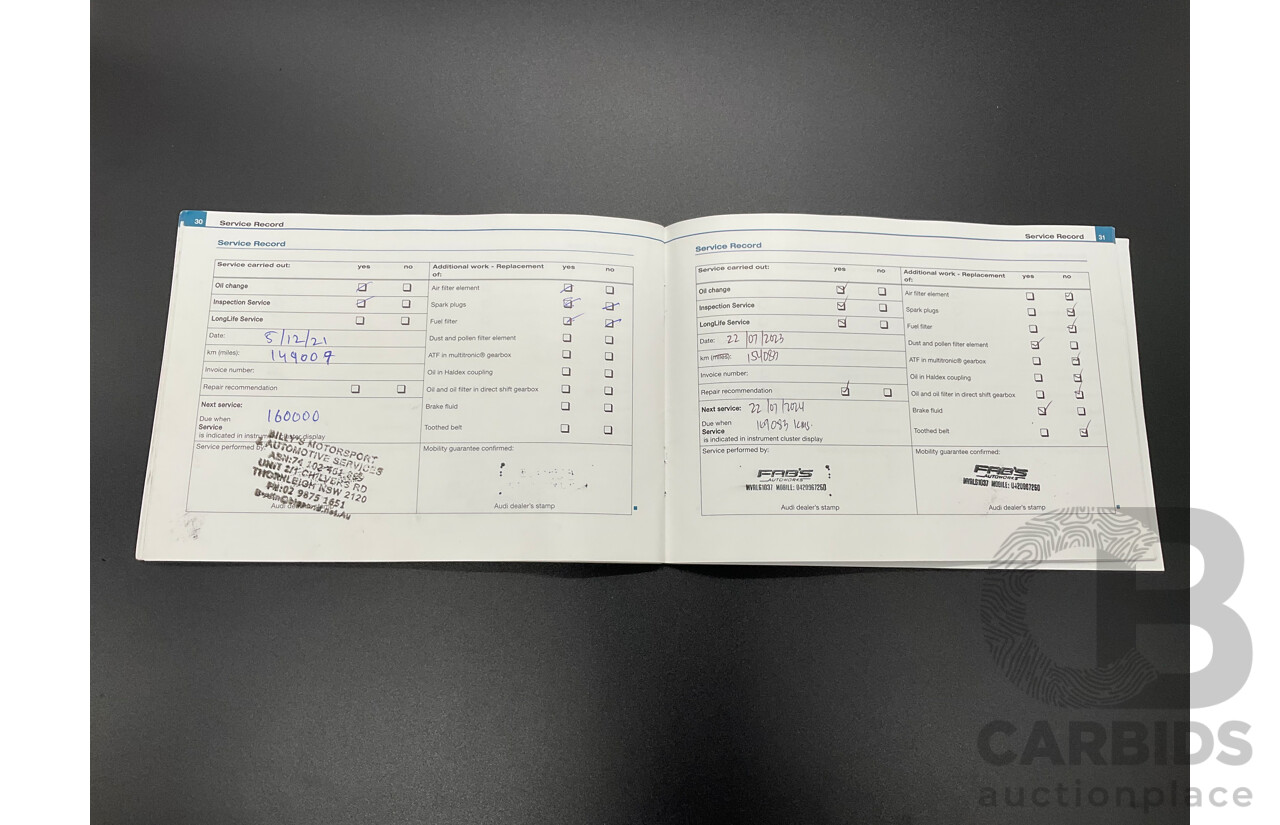 30 Service Record
Service Record
Service carried out: yes no
Oil change
Inspection Service
LongLife Service
Date: 8/12/21
km (miles): 149009
Invoice number:
Repair recommendation
Next service:
Due when 160000
Service
is indicated in instrument cluster display
Service performed by:
BILLY'S MOTORSPORT
& AUTOMOTIVE SERVICES
UNIT 2/1 CHILVERS RD
THORNLEIGH NSW 2120
PH:02 9875 1651
Audi dealer's stamp
Additional work - Replacement of: yes no
Air filter element
Spark plugs
Fuel filter
Dust and pollen filter element
ATF in multitronic® gearbox
Oil in Haldex coupling
Oil and oil filter in direct shift gearbox
Brake fluid
Toothed belt
Mobility guarantee confirmed:
Audi dealer's stamp
Service Record 31
Service Record
Service carried out: yes no
Oil change
Inspection Service
LongLife Service
Date: 22/07/2023
km (miles): 154087
Invoice number:
Repair recommendation
Next service: 22/07/2024
Due when 169083 kms
Service
is indicated in instrument cluster display
Service performed by:
FAB'S
AUTOWORKS
MVRL61037 MOBILE: 0420967260
Audi dealer's stamp
Additional work - Replacement of: yes no
Air filter element
Spark plugs
Fuel filter
Dust and pollen filter element
ATF in multitronic® gearbox
Oil in Haldex coupling
Oil and oil filter in direct shift gearbox
Brake fluid
Toothed belt
Mobility guarantee confirmed:
FAB'S
AUTOWORKS
MVRL61037 MOBILE: 0420967260
Audi dealer's stamp
CARBIDS
auctionplace